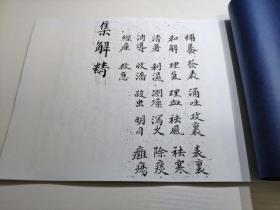 補養 發表 涌吐 攻裏 表裏
和解 理氣 理血 祛風 祛寒
清暑 利濕 潤燥 瀉火 除痰
消導 收濇 殺虫 明目 癰瘍
經産 救急
集解精